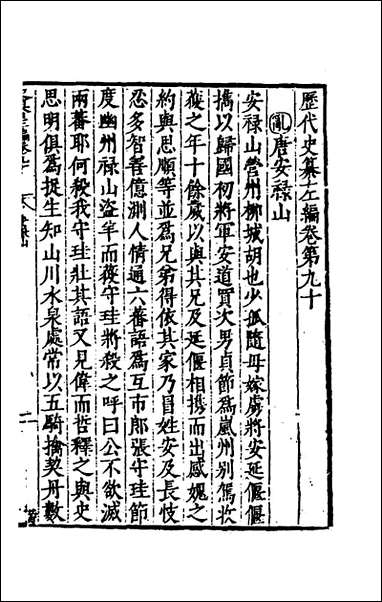 歷代史纂左編卷第九十
亂 唐安祿山
安祿山營州柳城胡也少孤隨母嫁虜將安延偃偃
攜以歸國初將軍安道買次男貞節為嵐州別駕收
葰之年十餘歲以與其兄及延偃相携而出感媿之
約與思順等並為兄弟得依其家乃冒姓安及長忮
忍多智善億測人情通六蕃語為互市郎張守珪節
度幽州祿山盜羊而葰守珪將殺之呼曰公不欲滅
兩蕃耶何殺我守珪壯其語又見偉而晳釋之與史
思明俱為捉生知山川水泉處常以五騎擒契丹數